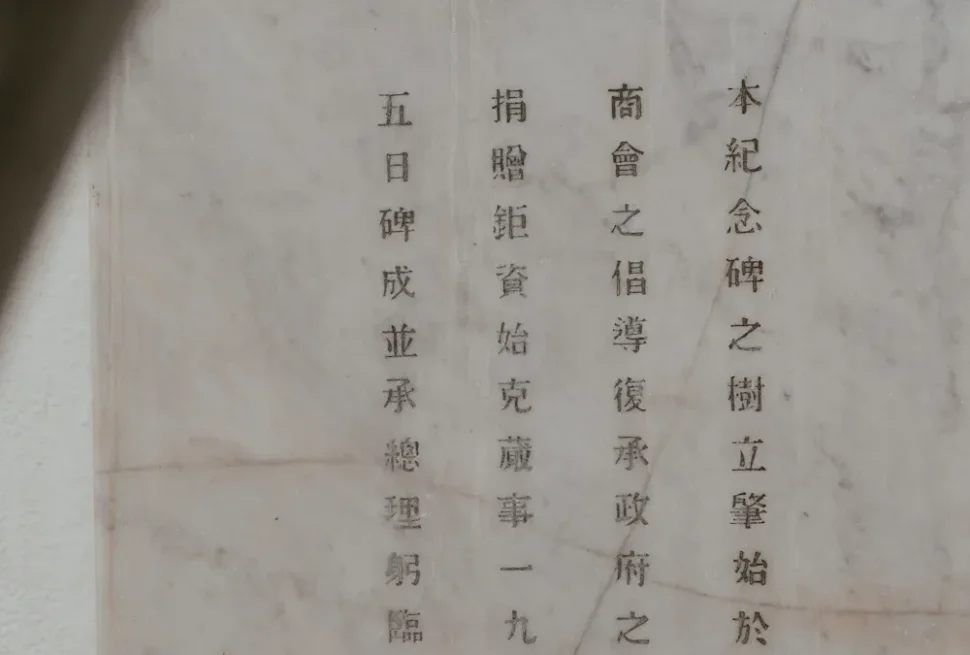 本紀念碑之樹立肇始於
商會之倡導復承政府之
捐贈鉅資始克蕆事一九
五日碑成並承總理躬臨